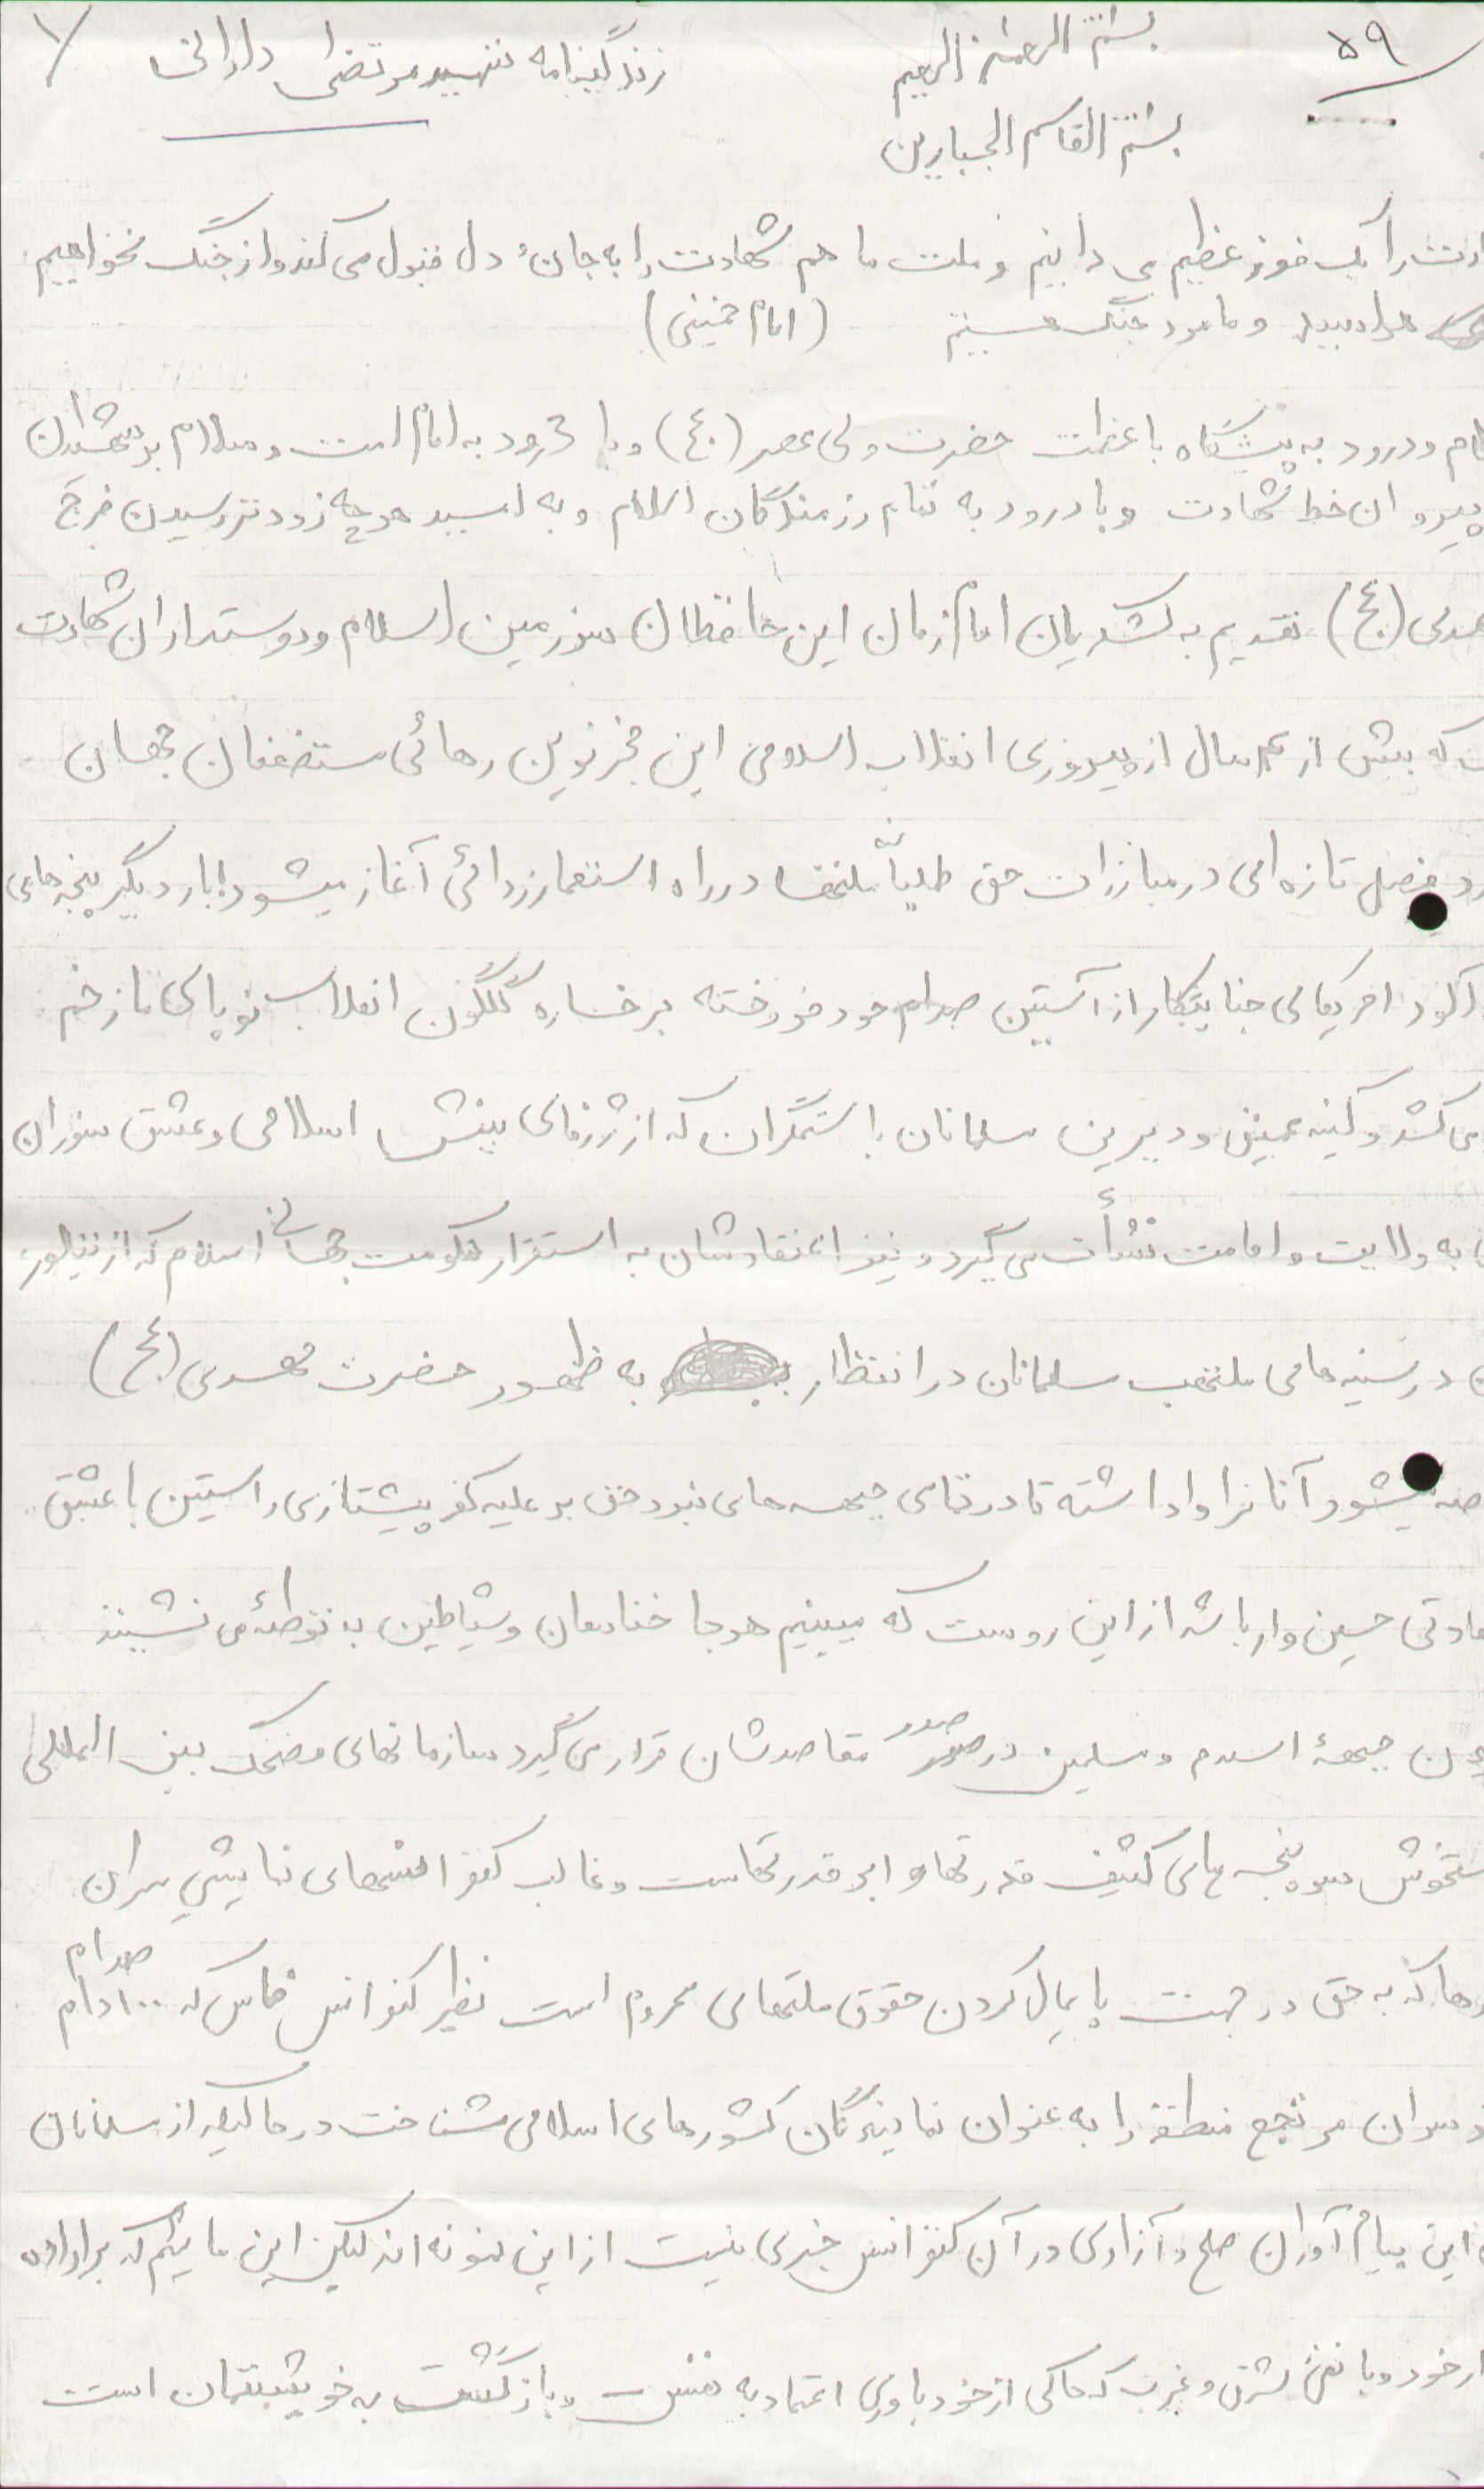 ۵۹
بسم الله الرحمن الرحیم
زندگینامه شهید مرتضی دارائی
۱
بسم الله القاسم الجبارین
را یک فوز عظیم می دانیم و ملت ما هم شهادت را به جان و دل قبول می کند و از جنگ نخواهیم
هراسید و ما مرد جنگ هستیم (امام خمینی)
و درود به پیشگاه با عظمت حضرت ولی عصر (عج) و با درود به امام امت و سلام بر شهیدان
پیروان خط شهادت و با درود به تمام رزمندگان اسلام و به امید هر چه زودتر رسیدن فرج
(عج) تقدیم به لشکریان امام زمان این حافظان سرزمین اسلام و دوستداران شهادت
که بیش از سال از پیروزی انقلاب اسلامی این فجر نوین رهائی مستضعفان جهان
فصل تازه ای در مبارزات حق طلبانه ملتها در راه استعمار زدائی آغاز میشود بار دیگر پنجه های
امریکای جنایتکار از آستین صدام خود فروخته بر خساره گلگون انقلاب نو پای ما زخم
می کشد و کینه عمیق و دیرین مسلمانان با ستمگران که از ژرفای بینش اسلامی و عشق سوزان
به ولایت و امامت نشأت می گیرد و نیز اعتقادشان به استقرار حکومت جهانی اسلام که از
در سینه های ملتهب مسلمانان در انتظار به ظهور حضرت مهدی (عج)
میشود آنانرا واداشته تا در تمامی جبهه های نبرد حق بر علیه کفر پیشتازی راستین با عشق
حسین وار باشد از این روست که میبینیم هر جا خنادمان و شیاطین به توطئه می نشینند
جبهۀ اسلام و مسلمین در صدر مقاصدشان قرار می گیرد سازمانهای مضحک بین المللی
سر پنجه های کثیف قدرتها و ابر قدرتهاست و غالب کنفرانسهای نمایشی سران
که به حق در جهت پایمال کردن حقوق ملتهای محروم است نظیر کنفرانس فاس که صدام
و سران مرتجع منطقه را به عنوان نمایندگان کشورهای اسلامی شناخت در حالیکه از مسلمانان
این پیام آوران صلح و آزادی در آن کنفرانس خبری نیست از این نمونه اند لیکن این مائیم که بر اراده
خود و با نفی شرق و غرب که حاکی از خود باوری اعتماد به نفس و بازگشت به خویشتنمان است